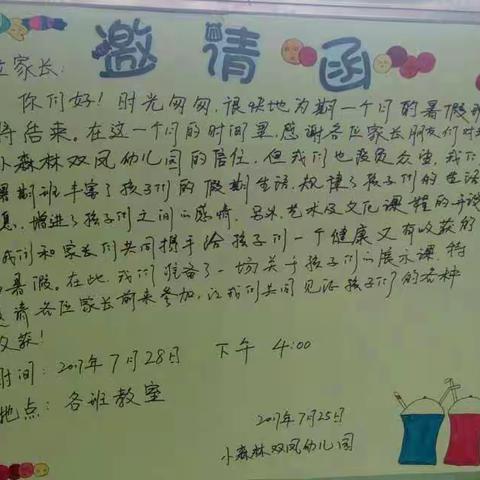 邀请函
位家长:
你们好！时光匆匆，很快地为期一个月的暑假班
将结束。在这一个月的时间里，感谢各位家长朋友们对
小森林双凤幼儿园的信任，但我们也不负众望，我们
暑期班丰富了孩子们的假期生活，规律了孩子们的生活
息，增进了孩子们之间的感情。另外，艺术及文化课程的开设
我们和家长们共同携手给孩子们一个健康又有收获的
暑假。在此，我们准备了一场关于孩子们的展示课，特
邀请各位家长前来参加，让我们共同见证孩子们的各种
收获！
时间：2017年7月28日 下午 4:00
地点：各班教室
2017年7月25日
小森林双凤幼儿园